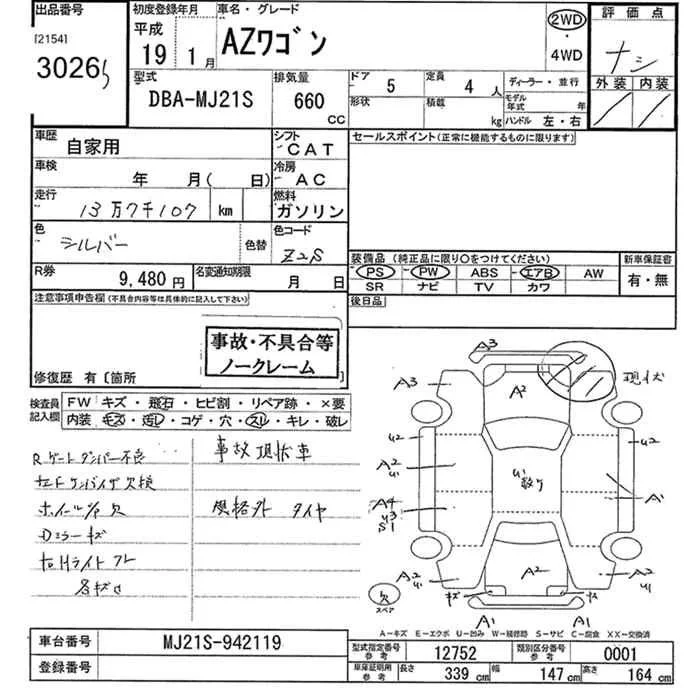 出品番号
[2154]
初度登録年月
平成
19 1月
車名・グレード
AZワゴン
2WD
・
4WD
評価点
ナシ
外装 内装
型式
DBA-MJ21S
排気量
660
CC
ドア 5
定員 4 人
ディーラー・並行
形状
積載 kg
モデル年式 年
ハンドル 左・右
車歴
自家用
シフト
CAT
セールスポイント(正常に機能するものに限ります)
車検
年 月( 日)
冷房
AC
走行
13万7千107 km
燃料
ガソリン
色
シルバー
色替
色コード
Z2S
装備品 (純正品に限り○をつけてください)
新車保証書
PS PW ABS エアB AW
有・無
SR ナビ TV カワ
R券
9,480 円
名変通知期限
月 日
後日品
注意事項申告欄(不具合内容等は具体的に記入して下さい)
事故・不具合等
ノークレーム
修復歴 有〔箇所
検査員
記入欄
FW キズ・飛石・ヒビ割・リペア跡・×要
内装 キズ・汚レ・コゲ・穴・スレ・キレ・破レ
Rゲートダンパー不良
事故現状車
ホイールキャ欠
規格外 タイヤ
Dミラーキズ
右Hライト
A3
A3
A2
現状
U2
U2
A2
U1
U1
散り
A1
A4
U3
S1
A2
U1
A2
A2
U1
キズ
欠
スペア
A1
A1
A-キズ E-エクボ U-凹み W-補修跡 S-サビ C-腐食 XX-交換済
車台番号
MJ21S-942119
型式指定番号
参考
12752
類別区分番号
参考
0001
登録番号
車庫証明用
参考
長さ 339 cm
幅 147 cm
高さ 164 cm